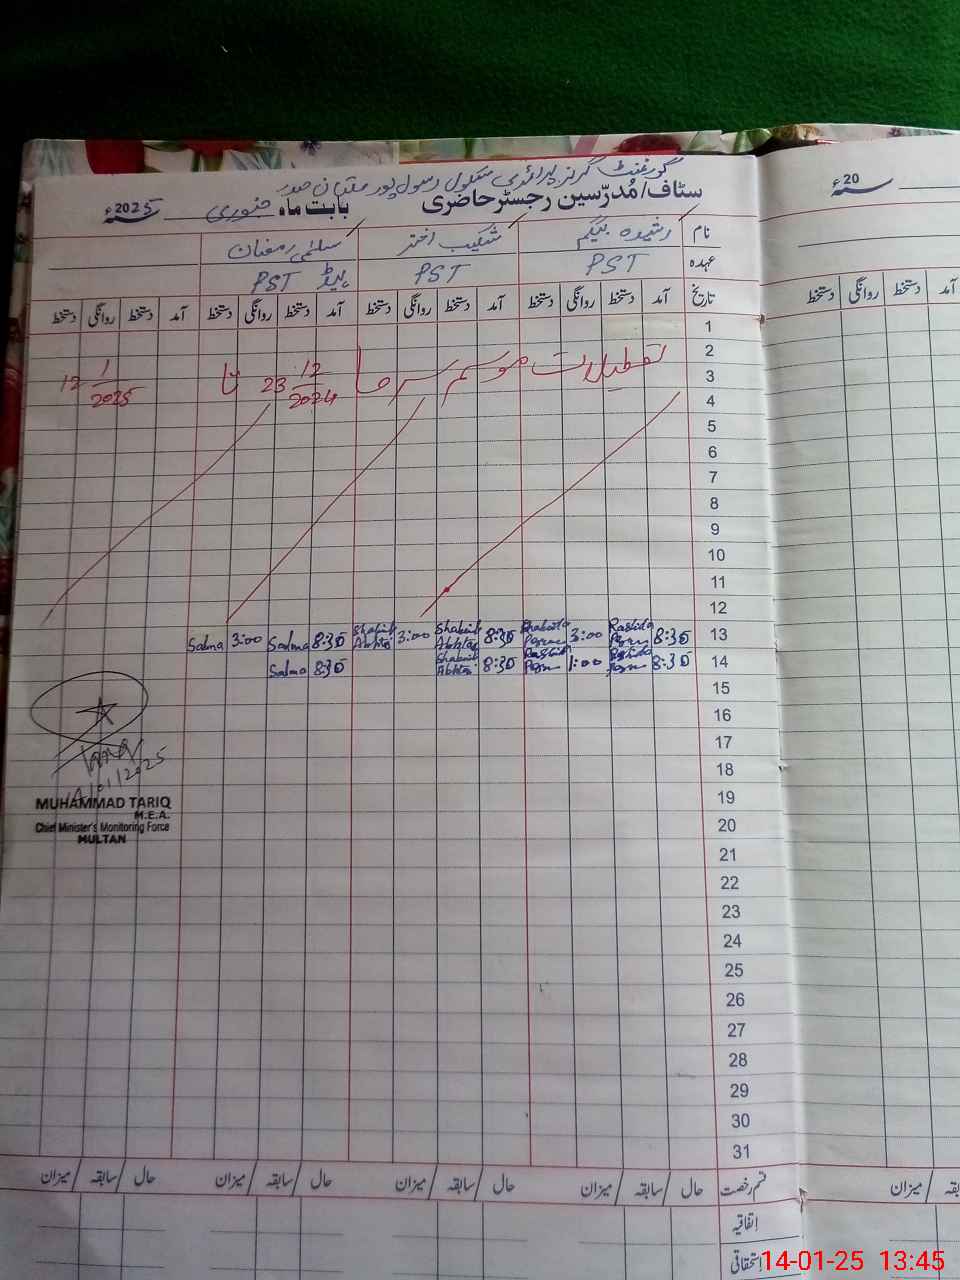 گورنمنٹ گرلز پرائمری سکول رسول پور ملتان صدر
سٹاف/مُدرّسین رجسٹر حاضری بابت ماہ جنوری 2025ء
20ء
نام رشیدہ بیگم شکیب اختر سلمٰی رمضان
عہدہ PST PST ہیڈ PST
تاریخ آمد دستخط روانگی دستخط آمد دستخط روانگی دستخط آمد دستخط روانگی دستخط آمد دستخط روانگی دستخط
آمد دستخط روانگی دستخط
1
2
تعطیلات موسم سرما 23 12/2024 تا 12 1/2025
3
4
5
6
7
8
9
10
11
12
13 8:30 Rashida 3:00 8:30 Shakeib Akhtar 3:00 Shakeib Akhtar 8:30 Salma 3:00 Salma
14 8:30 Rashida 1:00 Rashida 8:30 Shakeib Akhtar 8:30 Salma
15
16
17
18
19
20
21
22
23
24
25
26
27
28
29
30
31
/01/2025
MUHAMMAD TARIQ
M.E.A.
Chief Minister's Monitoring Force
MULTAN
قسم رخصت حال سابقہ میزان حال سابقہ میزان حال سابقہ میزان حال سابقہ میزان
میزان
اتفاقیہ
استحقاقی
14-01-25 13:45